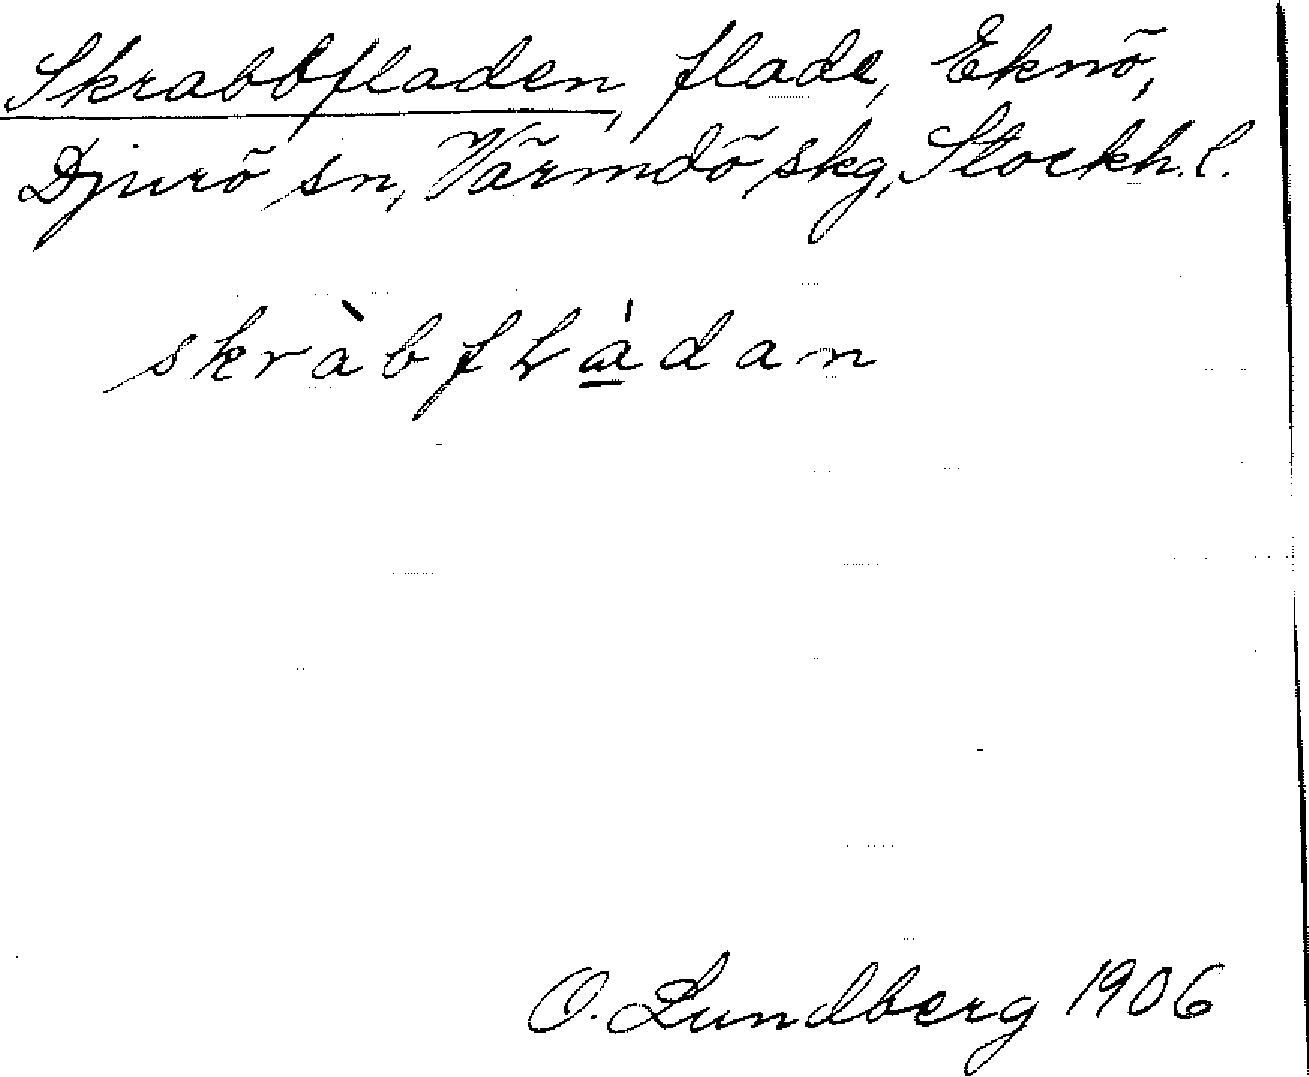 Skrabbfladen, flade, Eknö,
Djurö sn, Värmdö skg, Stockh. l.
skràbfLa̲̍dan
O. Lundberg 1906